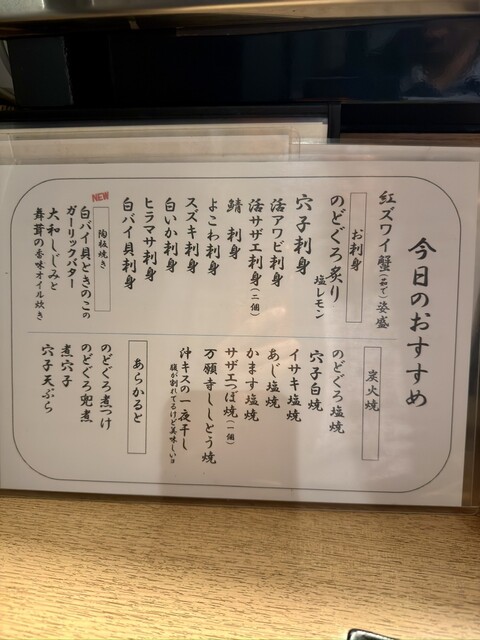 今日のおすすめ
紅ズワイ蟹(一名で)姿盛
お刺身
のどぐろ炙り
塩レモン
穴子刺身
活アワビ刺身
活サザエ刺身(二個)
鯖 刺身
よこわ刺身
スズキ刺身
白いか刺身
ヒラマサ刺身
白バイ貝刺身
NEW
陶板焼き
白バイ貝ときのこの
ガーリックバター
大和しじみと
舞茸の香味オイル炊き
炭火焼
のどぐろ塩焼
穴子白焼
イサキ塩焼
あじ塩焼
かます塩焼
サザエつぼ焼(一個)
万願寺ししとう焼
沖キスの一夜干し
腹が割れてるけど美味しいヨ
あらかると
のどぐろ煮つけ
のどぐろ兜煮
煮穴子
穴子天ぷら